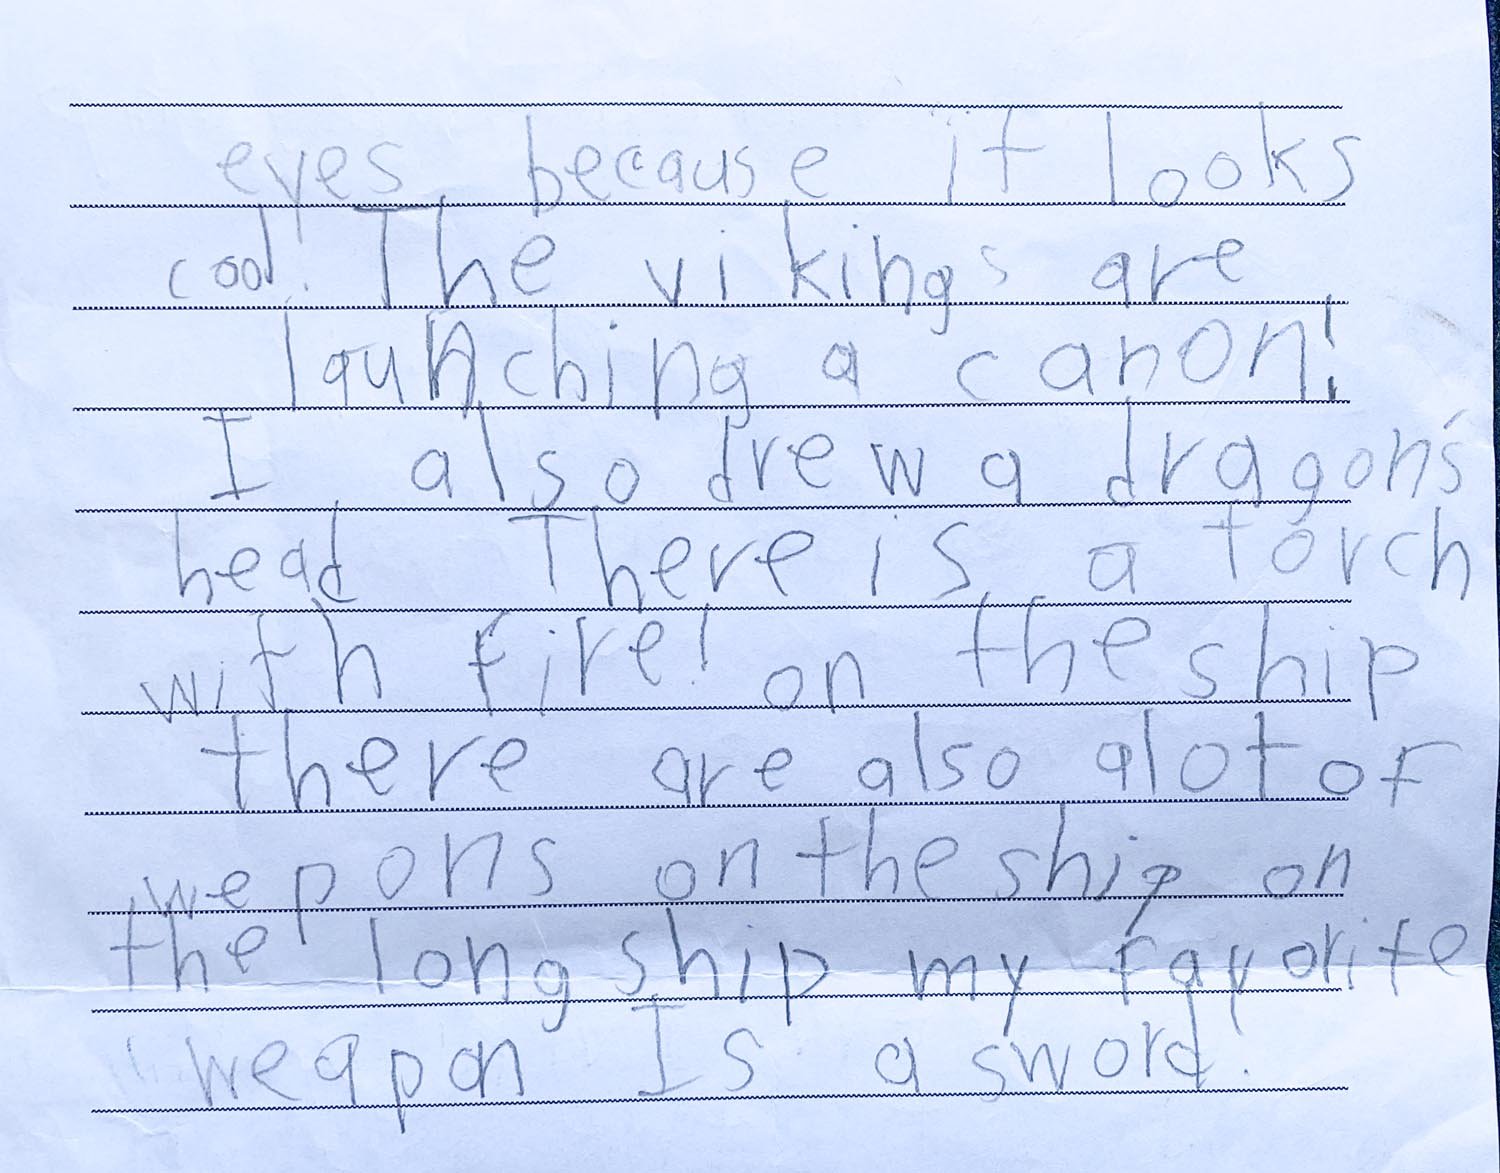 eyes because it looks
cool! The vikings are
launching a canon!
I also drew a dragon's
head There is a torch
with fire! on the ship
there are also alot of
wepons on the ship on
the long ship my favorite
weapon Is a sword.